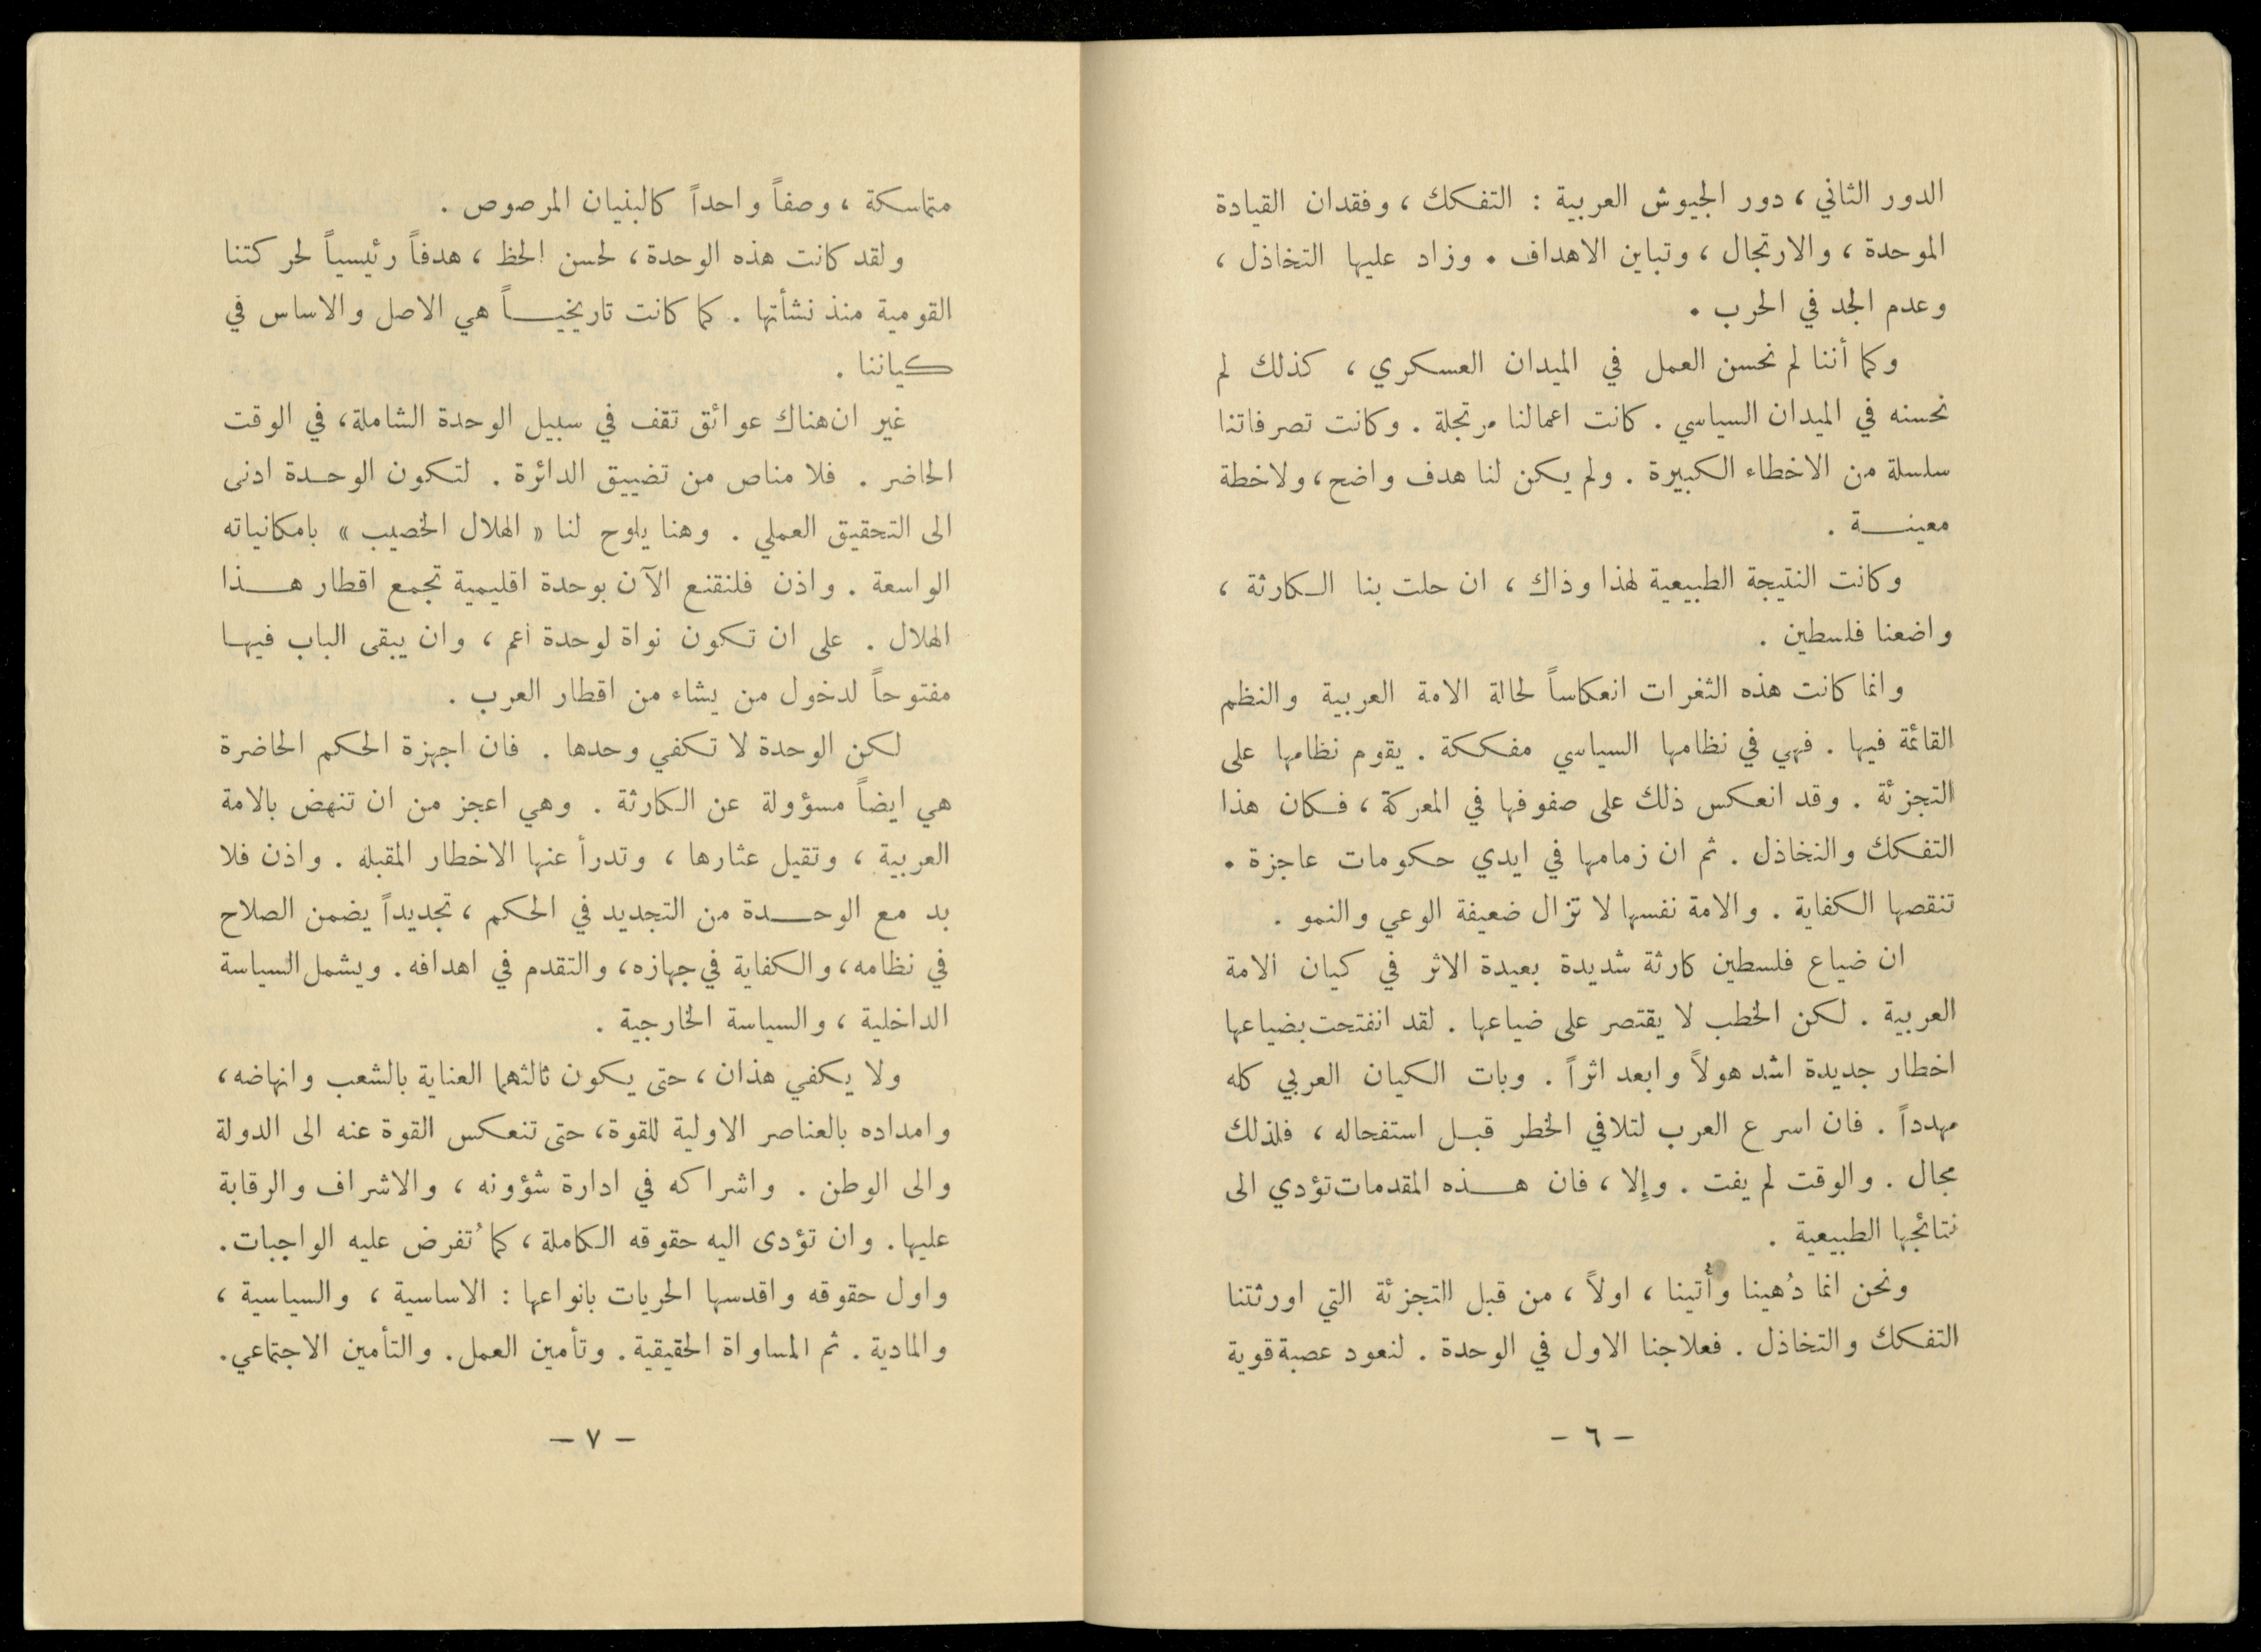 الدور الثاني، دور الجيوش العربية : التفكك، وفقدان القيادة
الموحدة ، والارتجال ، وتباين الاهداف . وزاد عليها التخاذل ،
وعدم الجد في الحرب .
وكما أننا لم نحسن العمل في الميدان العسكري ، كذلك لم
نحسنه في الميدان السياسي . كانت اعمالنا مرتجلة . وكانت تصرفاتنا
سلسلة من الاخطاء الكبيرة . ولم يكن لنا هدف واضح، ولا خطة
معينـــة .
وكانت النتيجة الطبيعية لهذا وذاك ، ان حلت بنا الـكارثة ،
واضعنا فلسطين .
وانما كانت هذه الثغرات انعكاساً لحالة الامة العربية والنظم
القائمة فيها . فهي في نظامها السياسي مفككة . يقوم نظامها على
التجزئة . وقد انعكس ذلك على صفوفها في المعركة ، فـكان هذا
التفكك والتخاذل . ثم ان زمامها في ايدي حكومات عاجزة .
تنقصها الـكفاية . والامة نفسها لا تزال ضعيفة الوعي والنمو .
ان ضياع فلسطين كارثة شديدة بعيدة الاثر في كيان الامة
العربية . لـكن الخطب لا يقتصر على ضياعها . لقد انفتحت بضياعها
اخطار جديدة اشد هولاً وابعد اثراً . وبات الـكيان العربي كله
مهدداً . فان اسرع العرب لتلافي الخطر قبـل استفحاله ، فلذلك
مجال . والوقت لم يفت . وإلا ، فان هـــذه المقدمات تؤدي الى
نتائجها الطبيعية .
ونحن انما دُهينا وأُتينا ، اولاً ، من قبل التجزئة التي اورثتنا
التفكك والتخاذل . فعلاجنا الاول في الوحدة . لنعود عصبة قوية
- ٦ -
متماسكة ، وصفاً واحداً كالبنيان المرصوص .
ولقد كانت هذه الوحدة، لحسن الحظ ، هدفاً رئيسياً لحركتنا
القومية منذ نشأتها . كما كانت تاريخيـــاً هي الاصل والاساس في
كياننا .
غير ان هناك عوائق تقف في سبيل الوحدة الشاملة، في الوقت
الحاضر . فلا مناص من تضييق الدائرة . لتـكون الوحـدة ادنى
الى التحقيق العملي . وهنا يلوح لنا « الهلال الخصيب » بامكانياته
الواسعة . واذن فلنقنع الآن بوحدة اقليمية تجمع اقطار هـــذا
الهلال . على ان تـكون نواة لوحدة أعم ، وان يبقى الباب فيهـا
مفتوحاً لدخول من يشاء من اقطار العرب .
لـكن الوحدة لا تـكفي وحدها . فان اجهزة الحـكم الحاضرة
هي ايضاً مسؤولة عن الـكارثة . وهي اعجز من ان تنهض بالامة
العربية ، وتقيل عثارها ، وتدرأ عنها الاخطار المقبلة . واذن فلا
بد مع الوحـــدة من التجديد في الحـكم ، تجديداً يضمن الصلاح
في نظامه، والـكفاية في جهازه، والتقدم في اهدافه. ويشمل السياسة
الداخلية ، والسياسة الخارجية .
ولا يـكفي هذان، حتى يـكون ثالثهما العناية بالشعب وانهاضه،
وامداده بالعناصر الاولية للقوة، حتى تنعـكس القوة عنه الى الدولة
والى الوطن . واشراكه في ادارة شؤونه ، والاشراف والرقابة
عليها. وان تؤدى اليه حقوقه الـكاملة ، كما تُفرض عليه الواجبات.
واول حقوقه واقدسها الحريات بانواعها : الاساسية ، والسياسية ،
والمادية . ثم المساواة الحقيقية. وتأمين العمل. والتأمين الاجتماعي.
- ٧ -